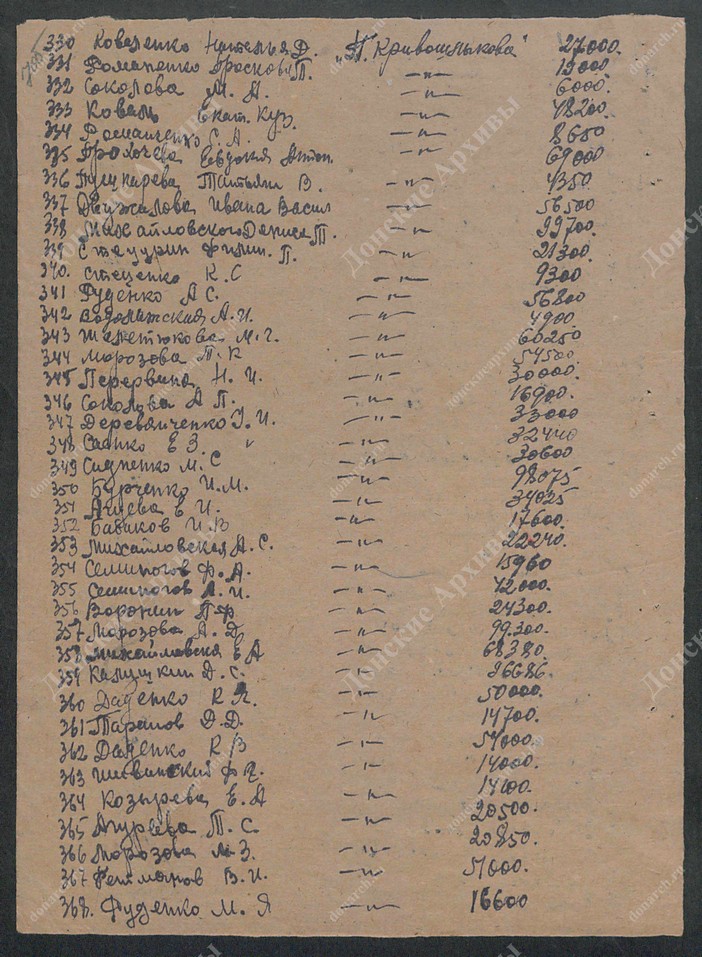 330 Коваленко Наталья Д. "П. Кривошлыкова" 27000.
331 Романенко Просковья П. —"— 19000
332 Соколова М. А. —"— 6000.
333 Коваль Екат. Куз. —"— 48200.
334 Романченко С. А. —"— 8650
335 Грохочева Евдокия Антон. —"— 69000
336 Пушкарева Татьяна В. —"— 4350.
337 Двужилова Ивана Васил —"— 56500
338 Михайловского Дениса Т. —"— 99700.
339 Филип. П. —"— 21300.
340. Стеценко К. С —"— 9300
341 Руденко А С. —"— 56800
342 Водолажская А. И. —"— 4900.
343 Шаметюкова М. Г. —"— 60250
344 Морозова П. К —"— 54500.
345 Н. И. —"— 30000.
346 Соколова А П. —"— 16900.
347 Деревянченко У. И. —"— 33000
348 Саенко Е З. " 32440
349 М. С —"— 30600
350 Бурченко И. М. —"— 98075
351 Е И. —"— 34025
352 Бабиков И. В —"— 17600.
353 Михайловская А. С. —"— 22240.
354 Семиногов Ф. А. —"— 15960
355 Семиногов А. И. —"— 42000.
356 Воронин П Ф. —"— 24300.
357 Морозова А. Д —"— 99.300.
358 Михайловска Е А —"— 68380.
359 Калушкин Д. С. —"— 96686.
360 Даденко К Я. —"— 50000.
361 Таранов Д. Д. —"— 14700.
362 Даденко К В —"— 54000.
363 Шевинский Ф Г. —"— 14000.
364 Козырева Е. А —"— 14100.
365 Агурева П. С. —"— 20500.
366 Морозова М З. —"— 20850.
367 Гетманов В. И. —"— 51000.
368. Руденко М. Я —"— 16600